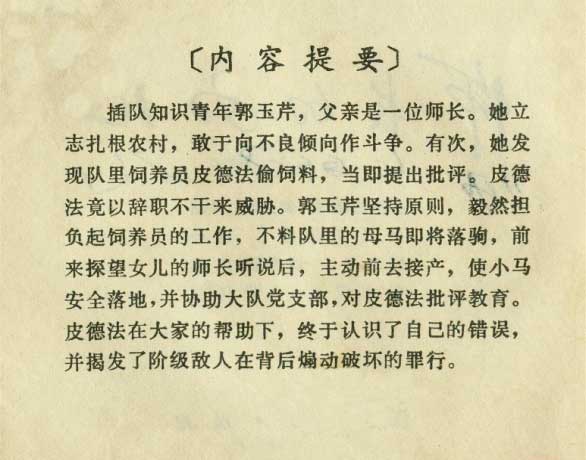 〔内容提要〕
插队知识青年郭玉芹，父亲是一位师长。她立
志扎根农村，敢于向不良倾向作斗争。有次，她发
现队里饲养员皮德法偷饲料，当即提出批评。皮德
法竟以辞职不干来威胁。郭玉芹坚持原则，毅然担
负起饲养员的工作，不料队里的母马即将落驹，前
来探望女儿的师长听说后，主动前去接产，使小马
安全落地，并协助大队党支部，对皮德法批评教育。
皮德法在大家的帮助下，终于认识了自己的错误，
并揭发了阶级敌人在背后煽动破坏的罪行。